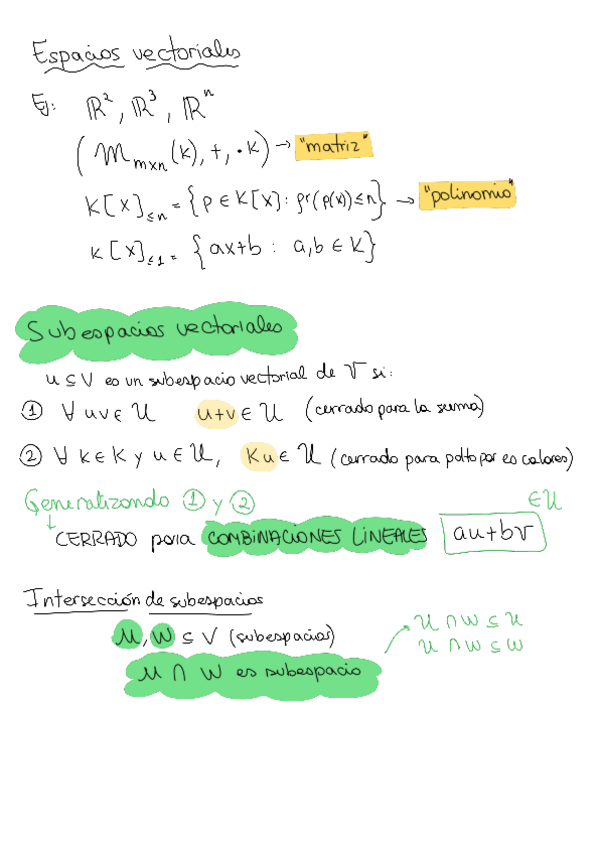 Espacios vectoriales
Ej: ℝ², ℝ³, ℝⁿ
(M_{m×n}(K), +, ·K) → "matriz"
K[X]_{≤n} = {p ∈ K[X] : gr(p(x)) ≤ n} → "polinomio"
K[X]_{≤1} = {ax+b : a,b ∈ K}
Subespacios vectoriales
U ⊆ V es un subespacio vectorial de V si:
① ∀ u,v ∈ U u+v ∈ U (cerrado para la suma)
② ∀ k ∈ K y u ∈ U, Ku ∈ U (cerrado para pdto por escalores)
Generalizando ① y ②
↳ CERRADO para COMBINACIONES LINEALES au+bv ∈ U
Intersección de subespacios
U, W ⊆ V (subespacios)
U ∩ W es subespacio
U ∩ W ⊆ U
U ∩ W ⊆ W